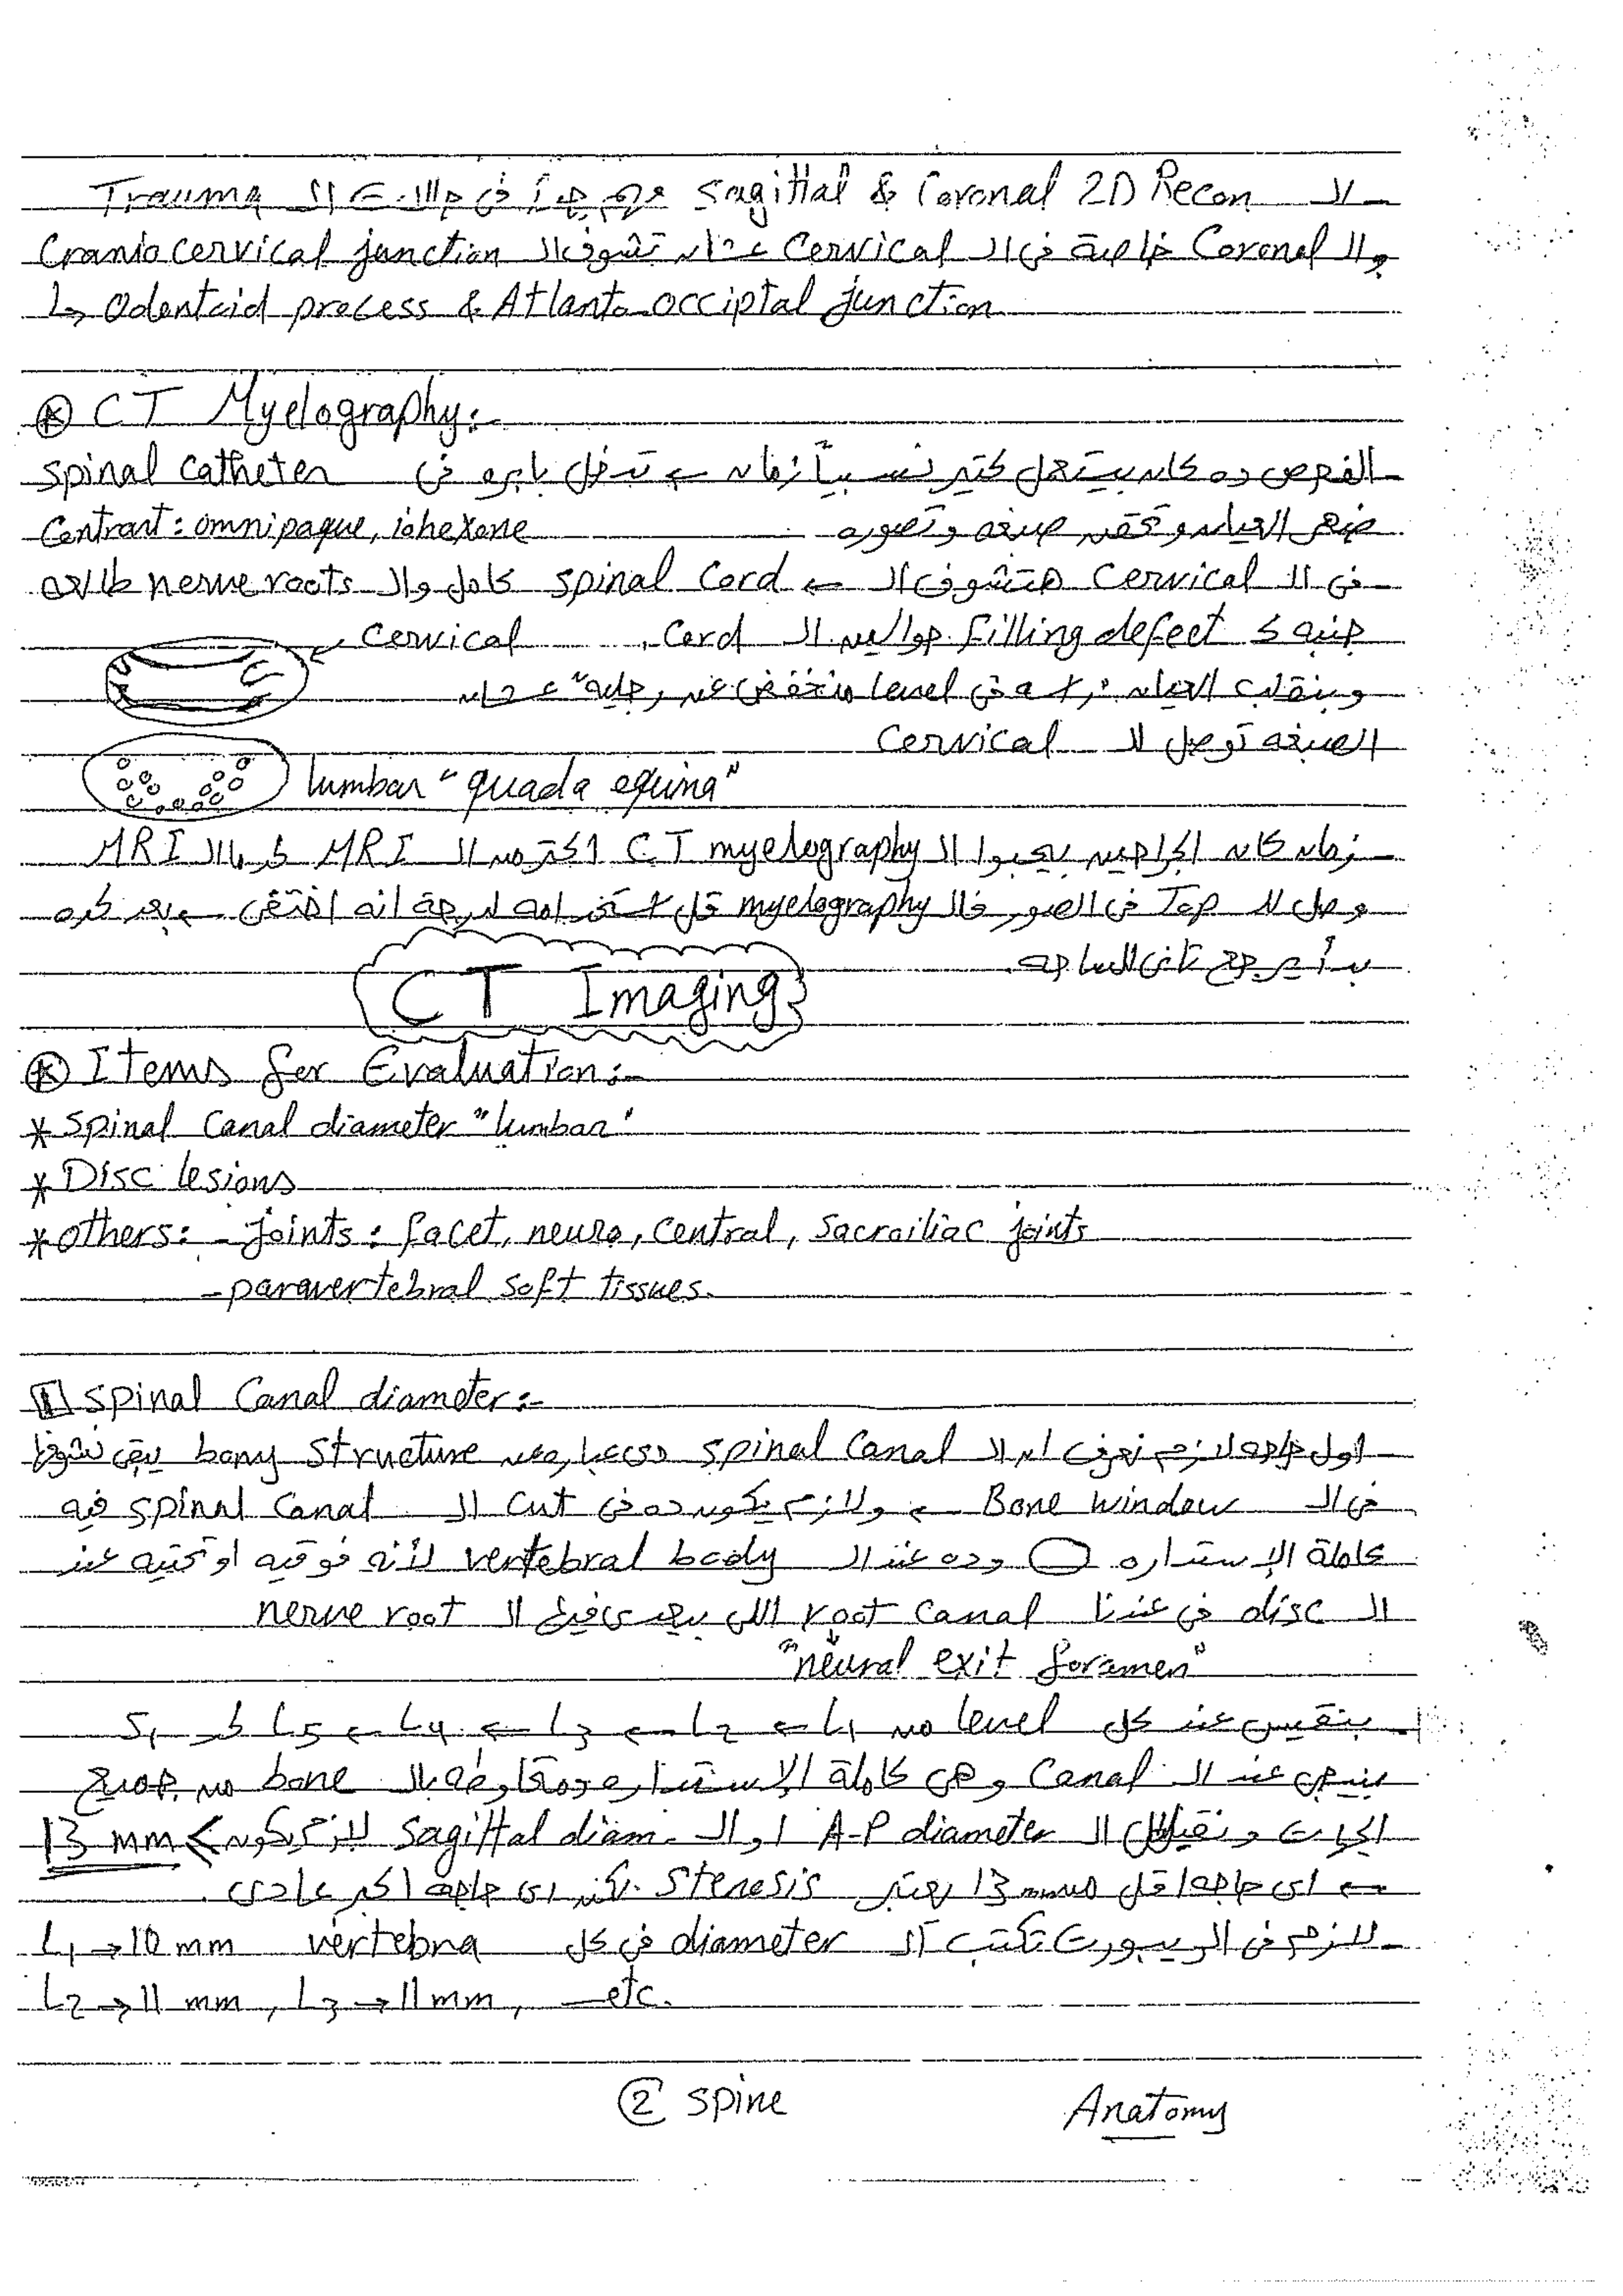 - الـ Sagittal & Coronal 2D Recon مهم جداً فى حالات الـ Trauma
والـ Coronal خاصة فى الـ Cervical عشان تشوف الـ Craniocervical junction
↳ Odentoid process & Atlanto-occiptal junction
⊛ CT Myelography:-
- الفحص ده كان بيستعمل كتير نسبياً زمان ← تدخل بابره فى spinal catheter
ضهر العيان وتحقن صبغه وتصوره Contrast: omnipaque, iohexone
- فى الـ Cervical هتشوف الـ ← spinal Cord كامل والـ nerve roots طالعه
جنبه كـ Filling defect حوالين الـ Cord. Cervical
وبنقلب العيان فى level منخفض عن رجليه" عشان
الصبغه توصل للـ Cervical
lumbar "quada equina"
- زمان كان الجراحين بيحبوا الـ CT myelography اكتر من الـ MRI، الـ MRI
وصل للـ Top فى الصور فالـ myelography قل استخدامه لدرجة انه اختفى ← بعد كده
بدأ يرجع تانى للساحه.
CT Imaging
⊛ Items for Evaluation:-
* Spinal Canal diameter "lumbar"
* Disc lesions
* others: - joints: facet, neuro, central, Sacroiliac joints
- paravertebral soft tissues.
1 Spinal Canal diameter:-
- اول حاجه لازم نعرف ان الـ Spinal Canal دى عباره عن bony structure يبقى نشوفها
فى الـ Bone window ← ولازم يكون ده فى cut الـ Spinal Canal فيه
كاملة الإستداره وده عند الـ vertebral body لأنه فوقيه او تحتيه عند
الـ disc فى عندنا root canal اللى بيعدى فيها الـ nerve root
"neural exit foramen"
- بنقيس عند كل level من L1 ← L2 ← L3 ← L4 ← L5 لـ S1
بنيجى عند الـ Canal وهى كاملة الإستداره ومتحاوطه بالـ bone من جميع
الجهات ونقيس الـ A-P diameter او الـ Sagittal diam. لازم يكون > 13 mm
← اى حاجه اقل من 13 mm يعتبر Stenosis. لكن اى حاجه اكبر عادى.
- لازم فى الريبورت تكتب الـ diameter فى كل vertebra L1 → 10 mm
L2 → 11 mm, L3 → 11 mm, —etc.
② Spine Anatomy